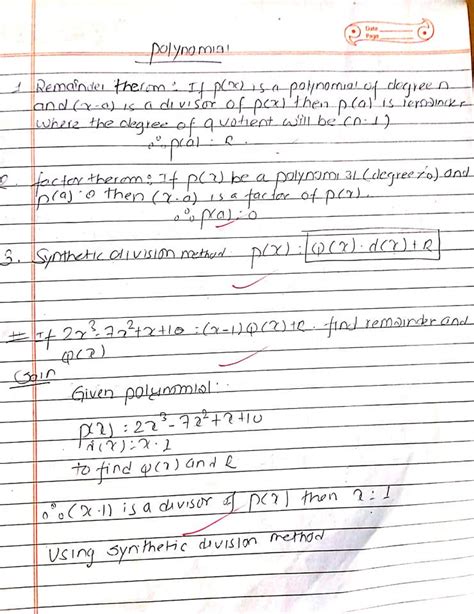 Date
Page
polynomial
1. Remainder therom : If p(x) is a polynomial of degree n
and (x-a) is a divisor of p(x) then p(a) is remainder
where the degree of quotient will be (n-1)
∴ p(a) = R.
2. factor therom : If p(x) be a polynomial (degree ≠ 0) and
p(a) = 0 then (x-a) is a factor of p(x).
∴ p(a) = 0
3. Synthetic division method p(x) = Q(x)·d(x)+R
# If 2x³-7x²+x+10 = (x-1)Q(x)+R. find remainder and
Q(x)
Given polynomial:
p(x) = 2x³-7x²+x+10
d(x) = x-1
to find Q(x) and R
∴ (x-1) is a divisor of p(x) then x = 1
Using synthetic division method